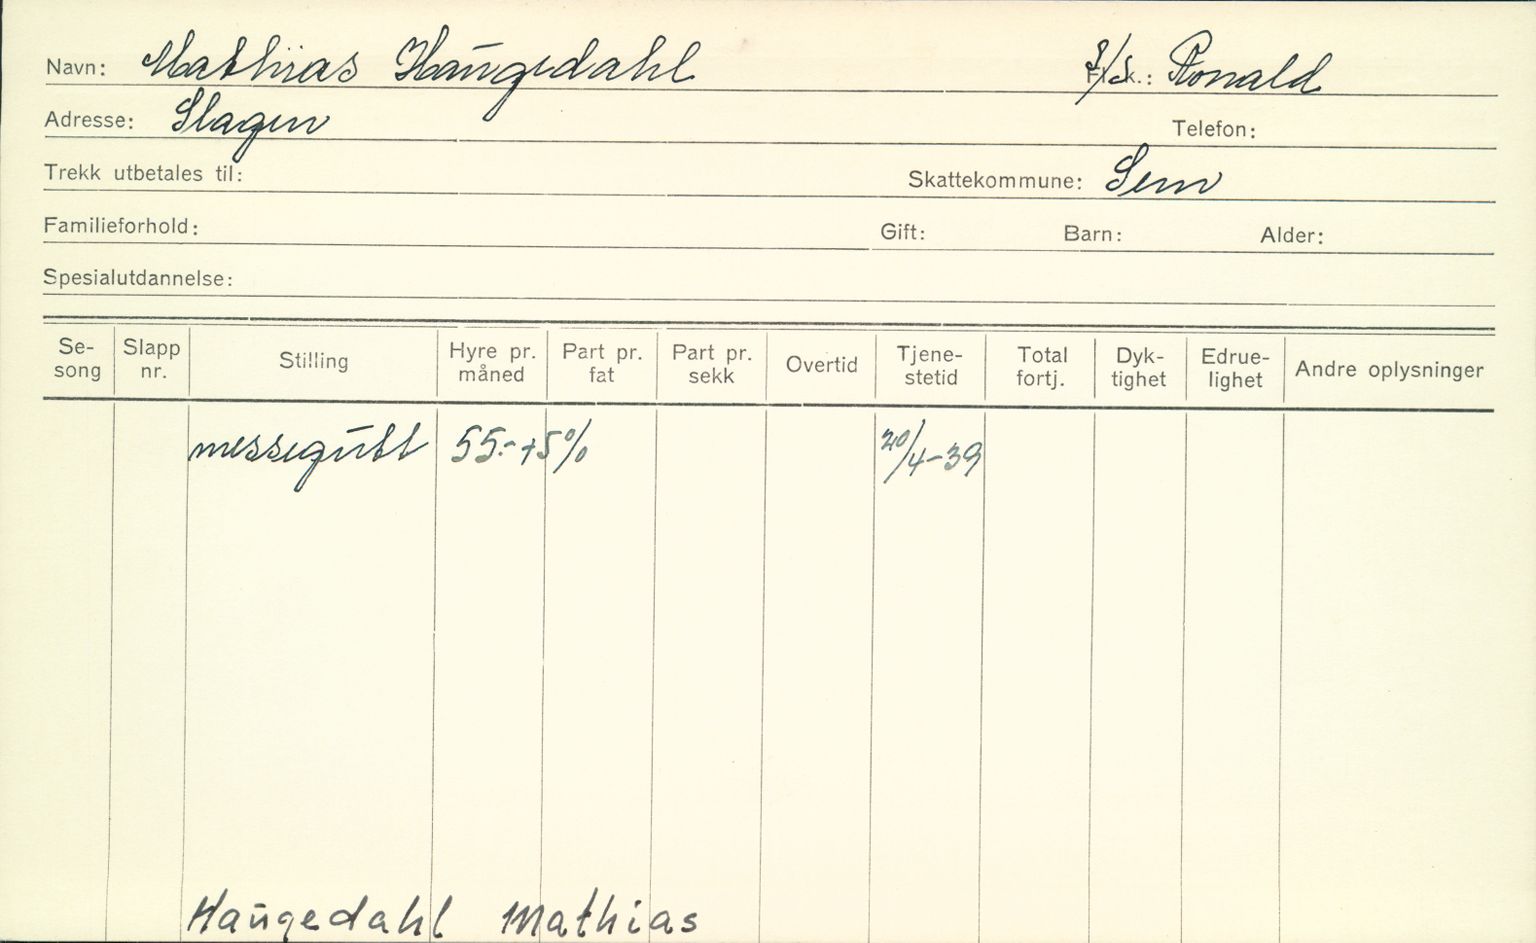 Navn: Mathias Haugedahl S/S. Fl.k.: Ronald
Adresse: Slagen Telefon:
Trekk utbetales til: Skattekommune: Sem
Familieforhold: Gift: Barn: Alder:
Spesialutdannelse:
Se- Slapp Stilling Hyre pr. Part pr. Part pr. Overtid Tjene- Total Dyk- Edrue- Andre oplysninger
song nr. måned fat sekk stetid fortj. tighet lighet
messegutt 55.- +5% 20/4-39
Haugedahl Mathias